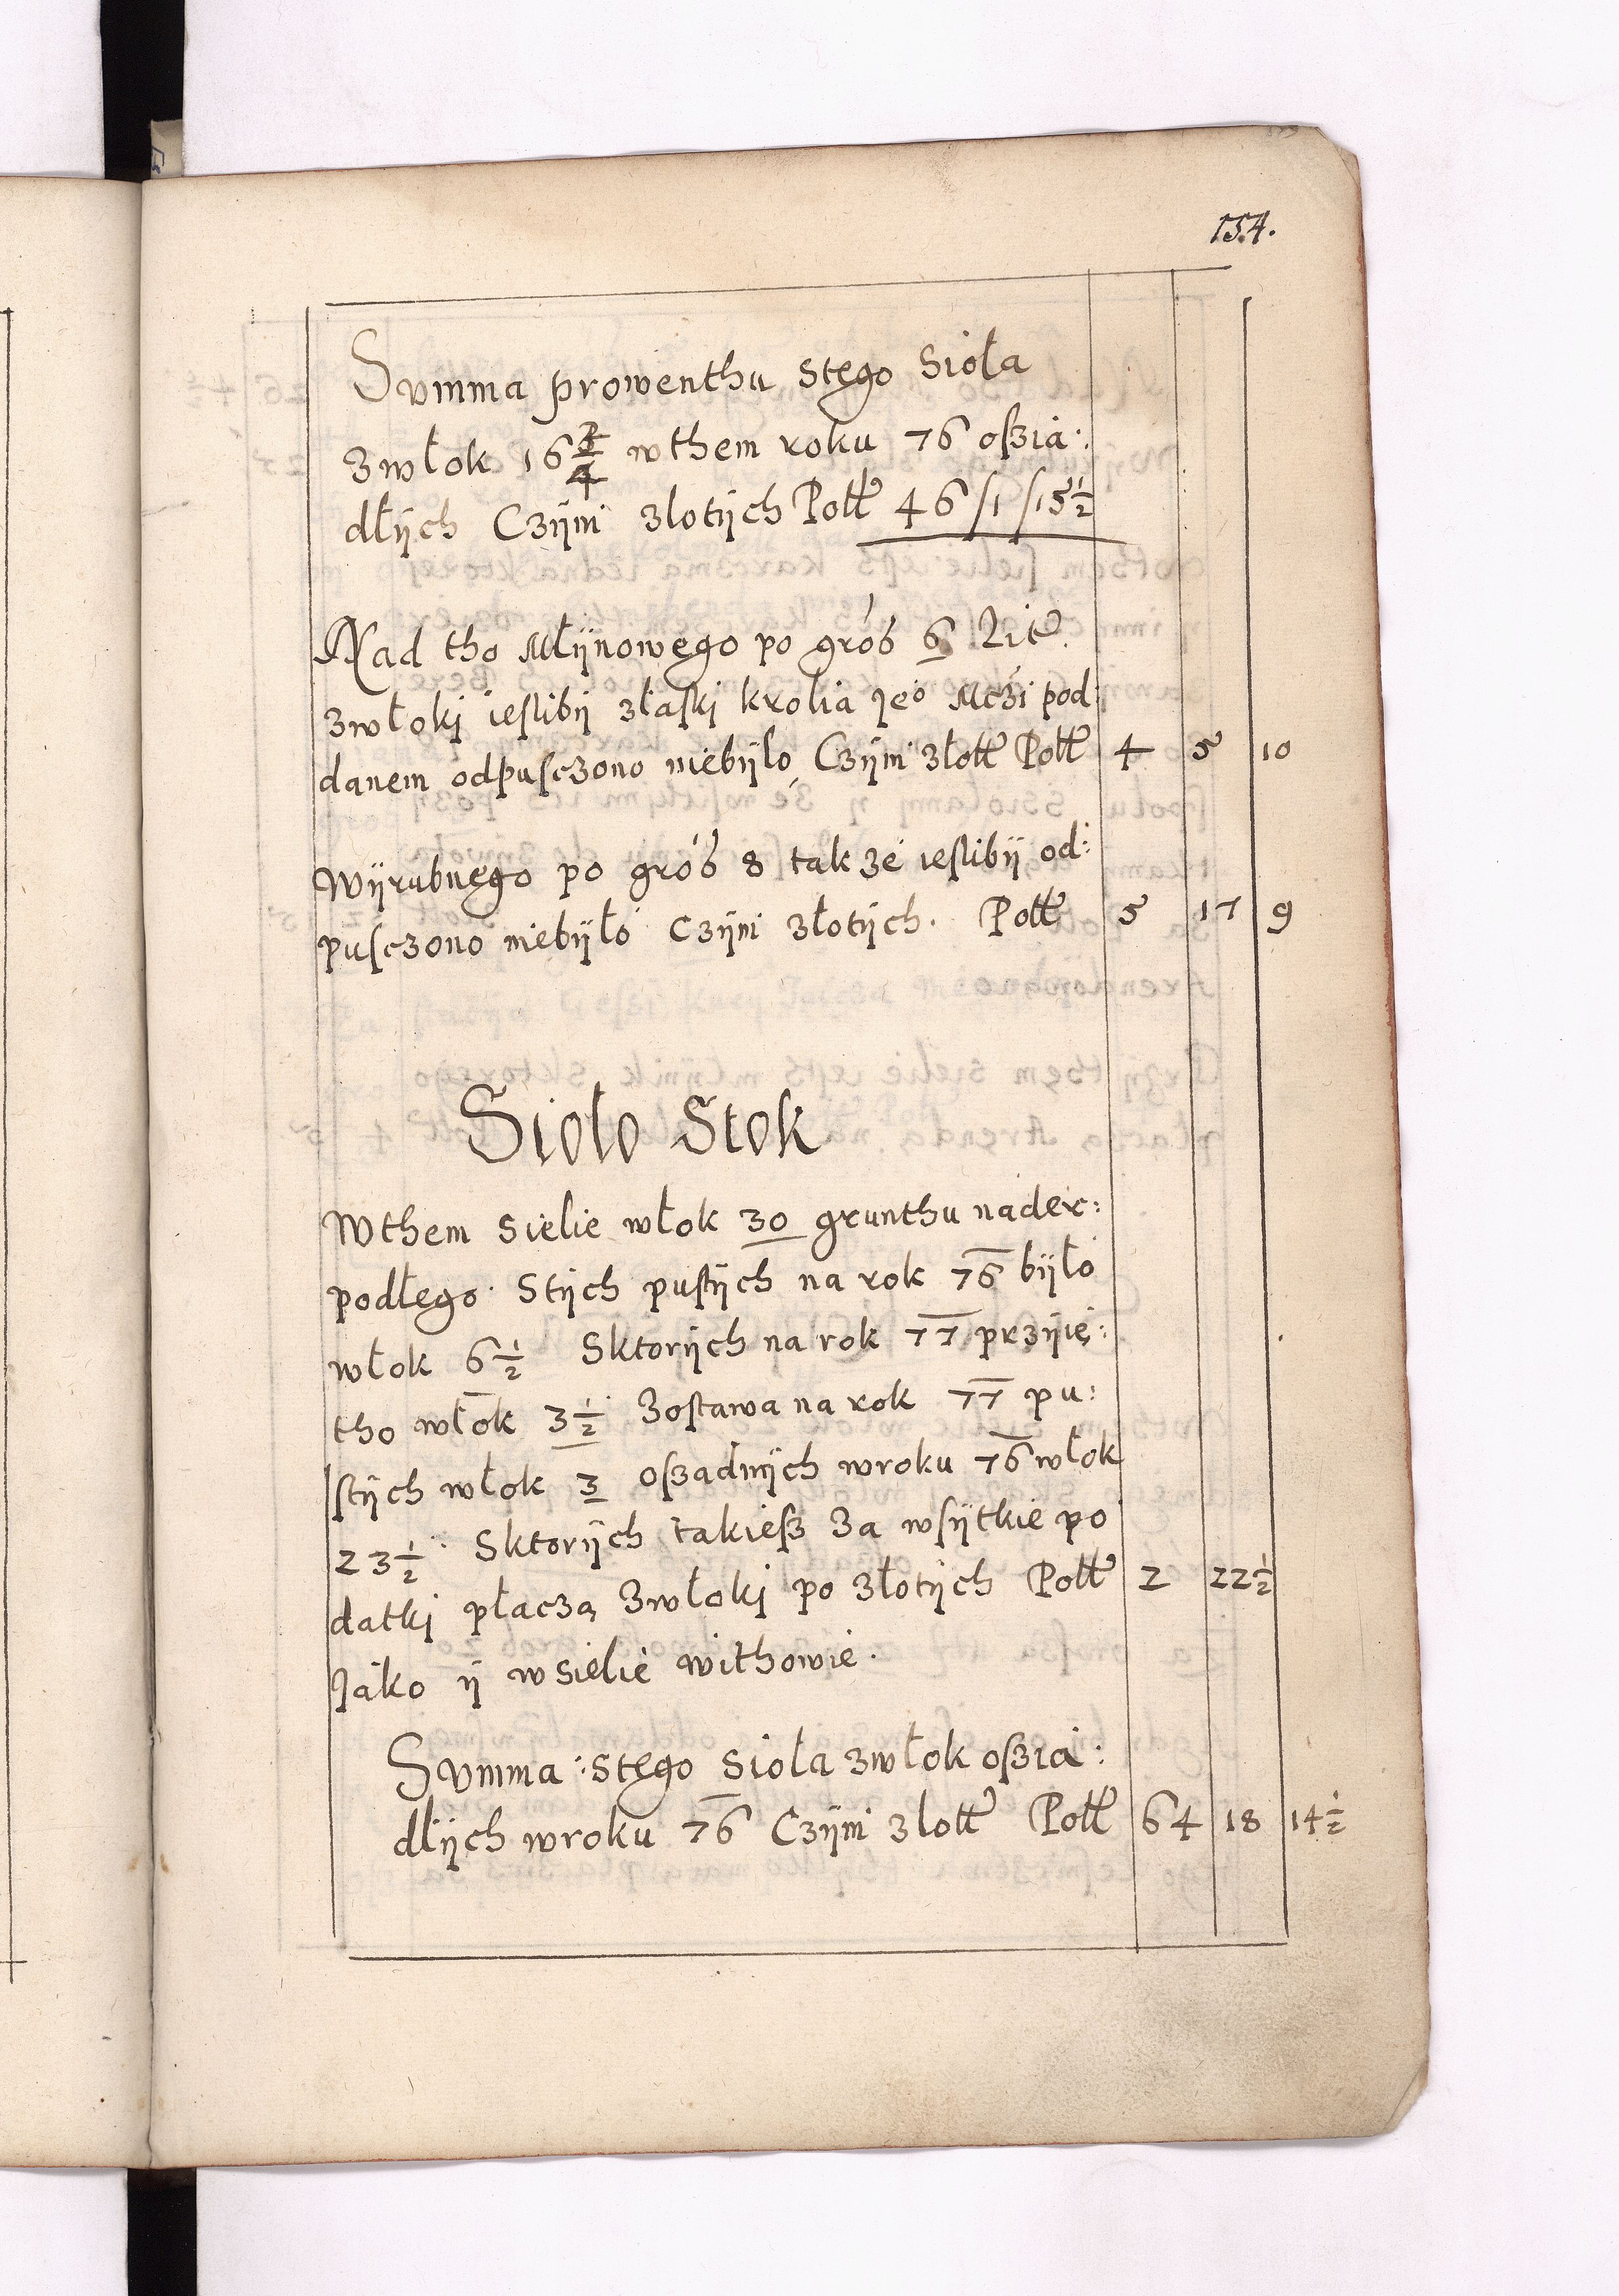 134.
Summa prowenthu stęgo Sioła
zwłok 16 3/4 w them roku 76 oszia:
dłÿch CzÿnÍ złotÿch Poll 46/1/15 1/2
Nad tho Młÿnowego po grós 6 Lit
zwłokj ieslibÿ złaskj krolia Jeo Mczi pod:
danem odpusczono niebÿlo CzÿnÍ złott Poll 4 5 10
Wÿrubnęgo po gróś 8 takze ieslibÿ od:
pusczono niebÿło CzÿnÍ złotÿch. Poll 5 17 9
Sioło Stok
Wthem Sielie włok 30 grunthu nader:
podłego. Stÿch pustÿch na rok 76 bÿło
włok 6 1/2 Sktorÿch na rok 77 przÿię:
tho włok 3 1/2 Zostawa na rok 77 pu:
stÿch włok 3 oszadnÿch wroku 76 włok
23 1/2 Sktorÿch takiesz Za wsÿtkie po
datkj płaczą Zwłokj po złotÿch Poll 2 22 1/2
Jáko ÿ w sielie withowie.
Summa: stęgo Sioła zwłok oszia:
dłÿch wroku 76 CzÿnÍ złott Poll 64 18 14 1/2